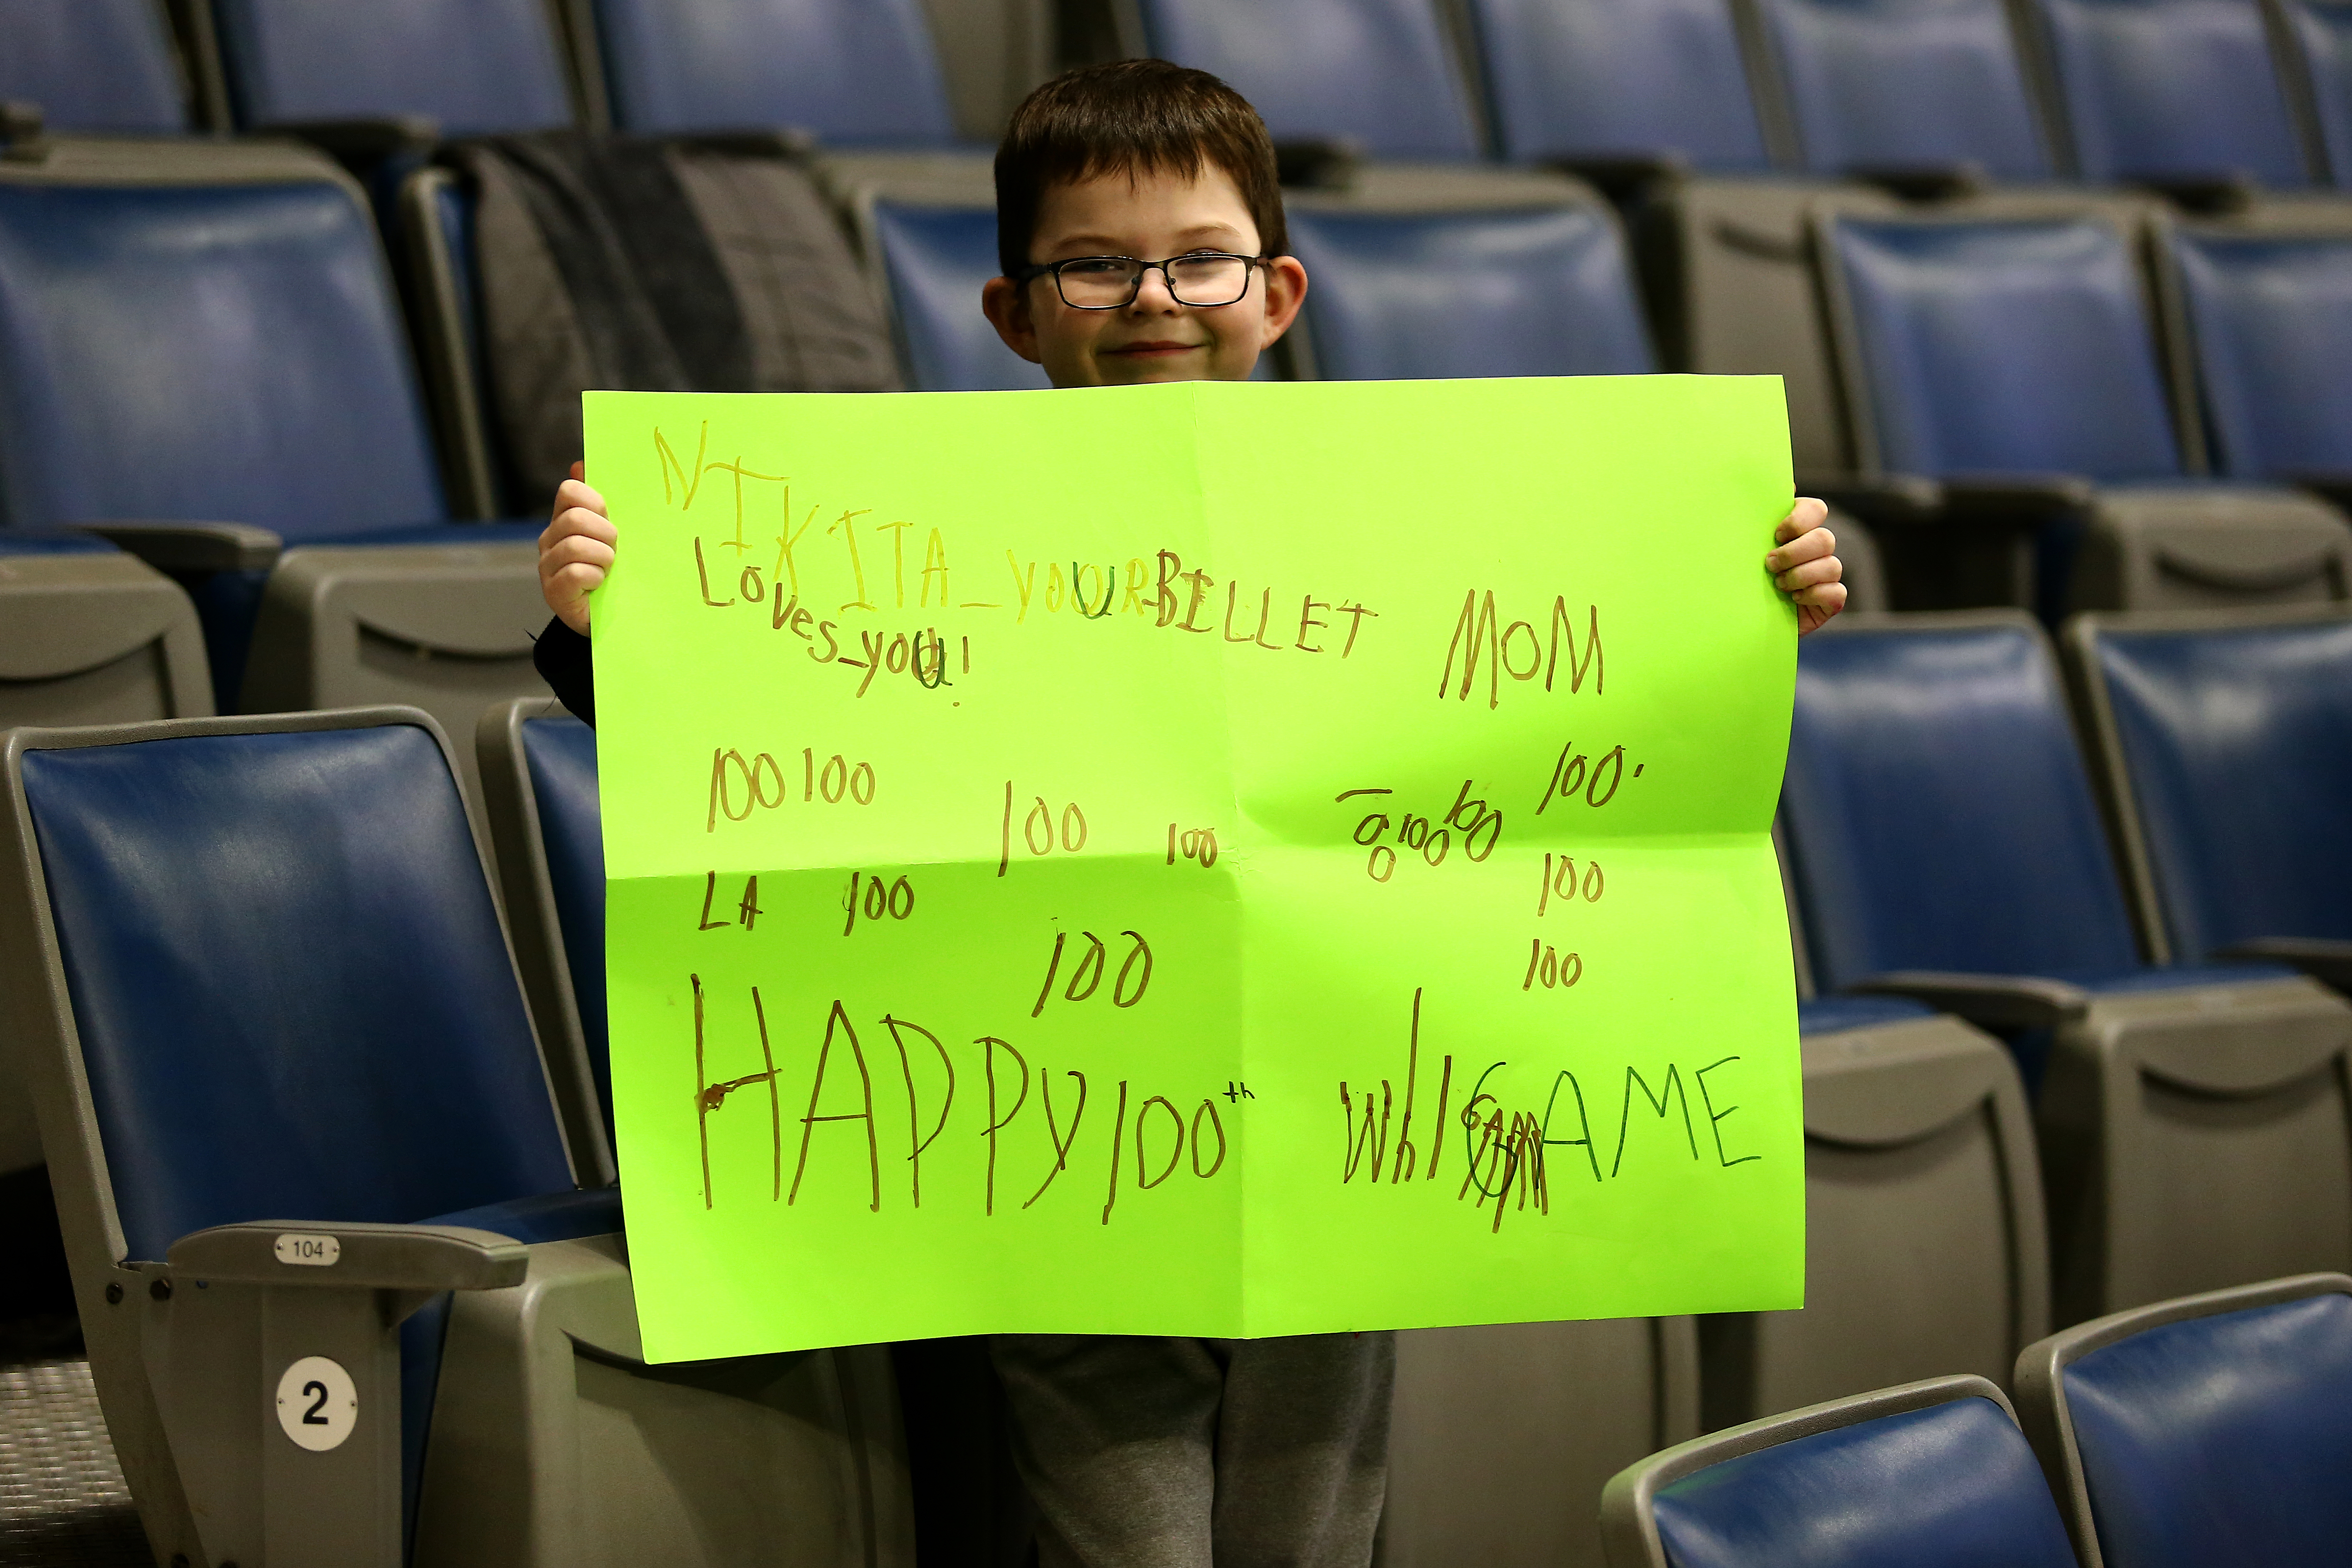 NIKITA_YOURBILLET MOM
Loves_you!
100 100 100 100 100 100 100.
LA 100 100
100 100
HAPPY 100th Whl GAME
104
2